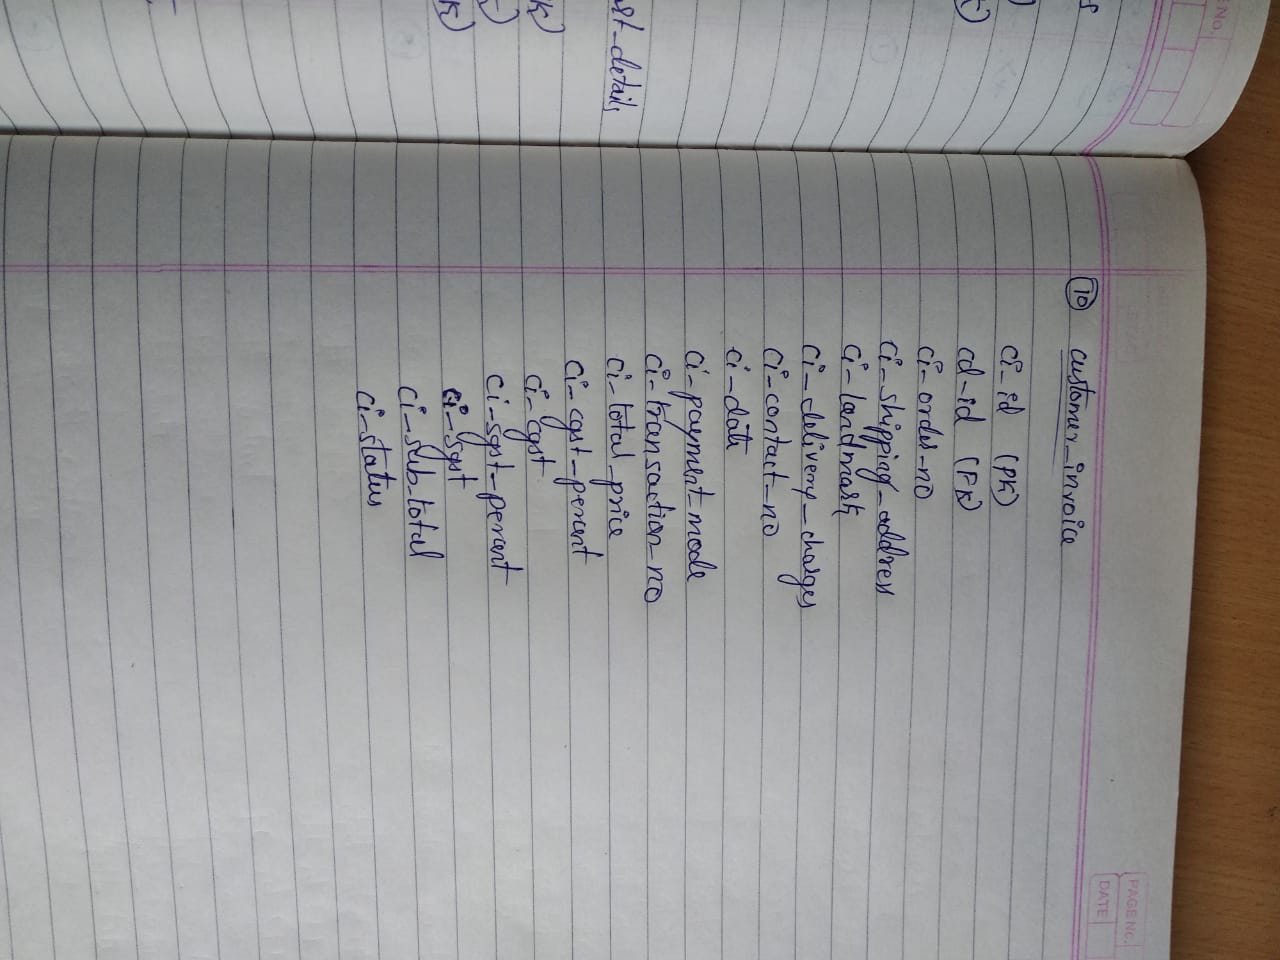 E NO.
s
)
)
st_details
K)
)
K)
PAGE NO.
DATE
10 customer_invoice
ci_id (PK)
cd_id (FK)
ci_order_no
ci_shipping_address
ci_landmark
ci_delivery_charges
ci_contact_no
ci_date
ci_payment_mode
ci_transaction_no
ci_total_price
ci_cgst_percent
ci_cgst
ci_sgst_percent
ci_sgst
ci_sub_total
ci_status